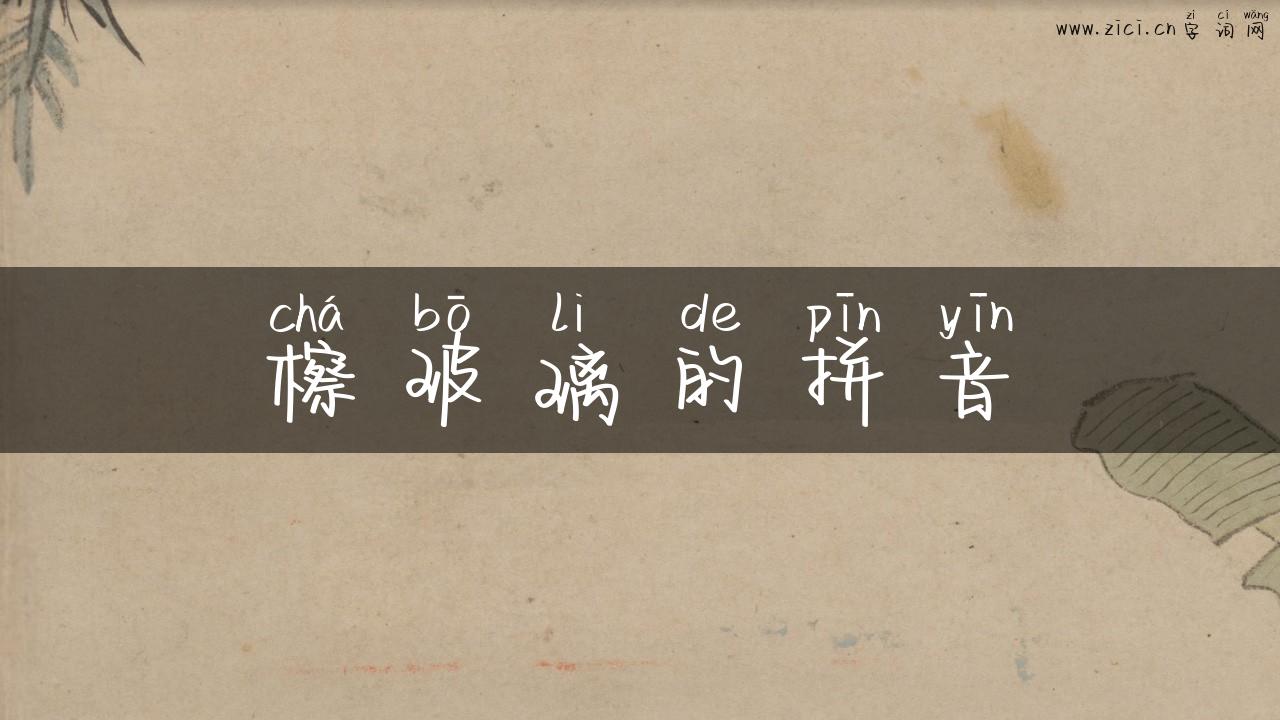 zì cí wǎng
www.zici.cn 字词网
chá bō li de pīn yīn
檫玻璃的拼音